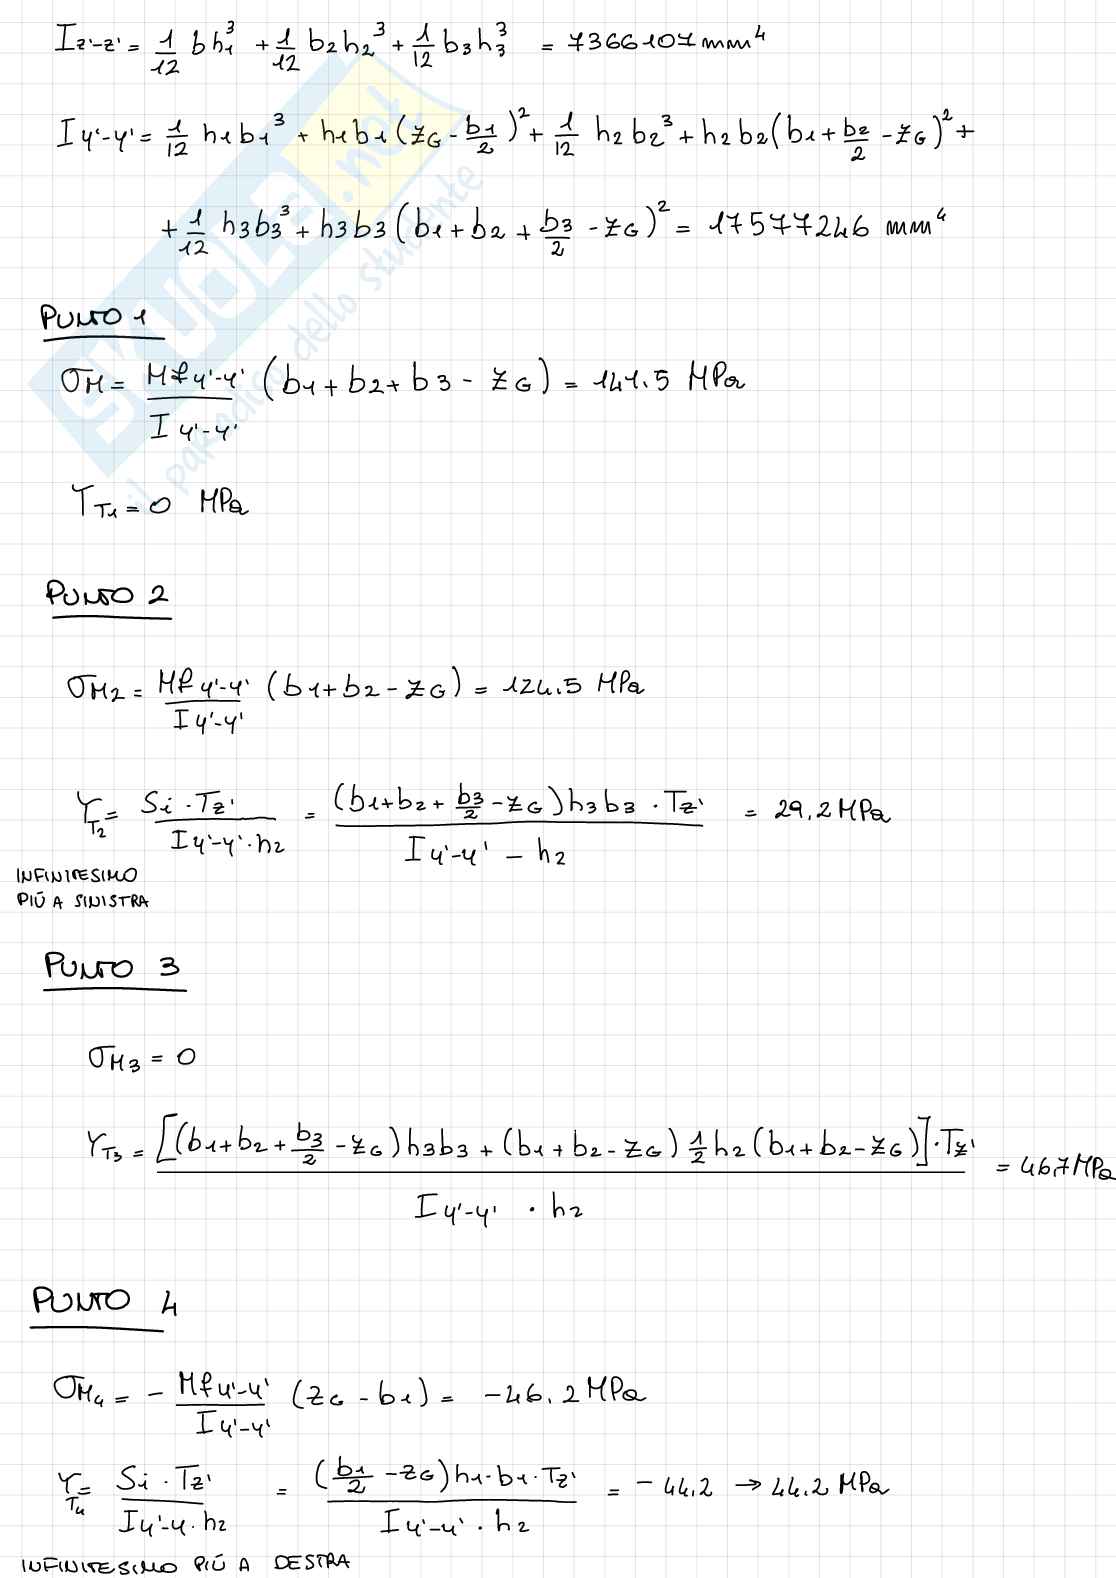 Iz'-z' = 1/12 b h₁³ + 1/12 b₂h₂³ + 1/12 b₃h₃³ = 7366107 mm⁴
Iy'-y' = 1/12 h₁b₁³ + h₁b₁(zG - b₁/2)² + 1/12 h₂b₂³ + h₂b₂(b₁ + b₂/2 - zG)² +
+ 1/12 h₃b₃³ + h₃b₃(b₁ + b₂ + b₃/2 - zG)² = 17577246 mm⁴
PUNTO 1
σM = Mfy'-y' / Iy'-y' (b₁ + b₂ + b₃ - zG) = 141.5 MPa
τT₁ = 0 MPa
PUNTO 2
σM2 = Mfy'-y' / Iy'-y' (b₁ + b₂ - zG) = 124.5 MPa
τT₂ = Si · Tz' / Iy'-y' · h₂ = (b₁ + b₂ + b₃/2 - zG) h₃b₃ · Tz' / Iy'-y' - h₂ = 29.2 MPa
INFINITESIMO
PIÚ A SINISTRA
PUNTO 3
σM3 = 0
τT₃ = [(b₁ + b₂ + b₃/2 - zG) h₃b₃ + (b₁ + b₂ - zG) 1/2 h₂ (b₁ + b₂ - zG)] · Tz' / Iy'-y' · h₂ = 46.7 MPa
PUNTO 4
σM₄ = - Mfy'-y' / Iy'-y' (zG - b₁) = -46.2 MPa
τT₄ = Si · Tz' / Iy'-y · h₂ = (b₁/2 - zG) h₁ · b₁ · Tz' / Iy'-y' · h₂ = -44.2 → 44.2 MPa
INFINITESIMO PIÚ A DESTRA
SKUOLA.net
il paradiso dello studente